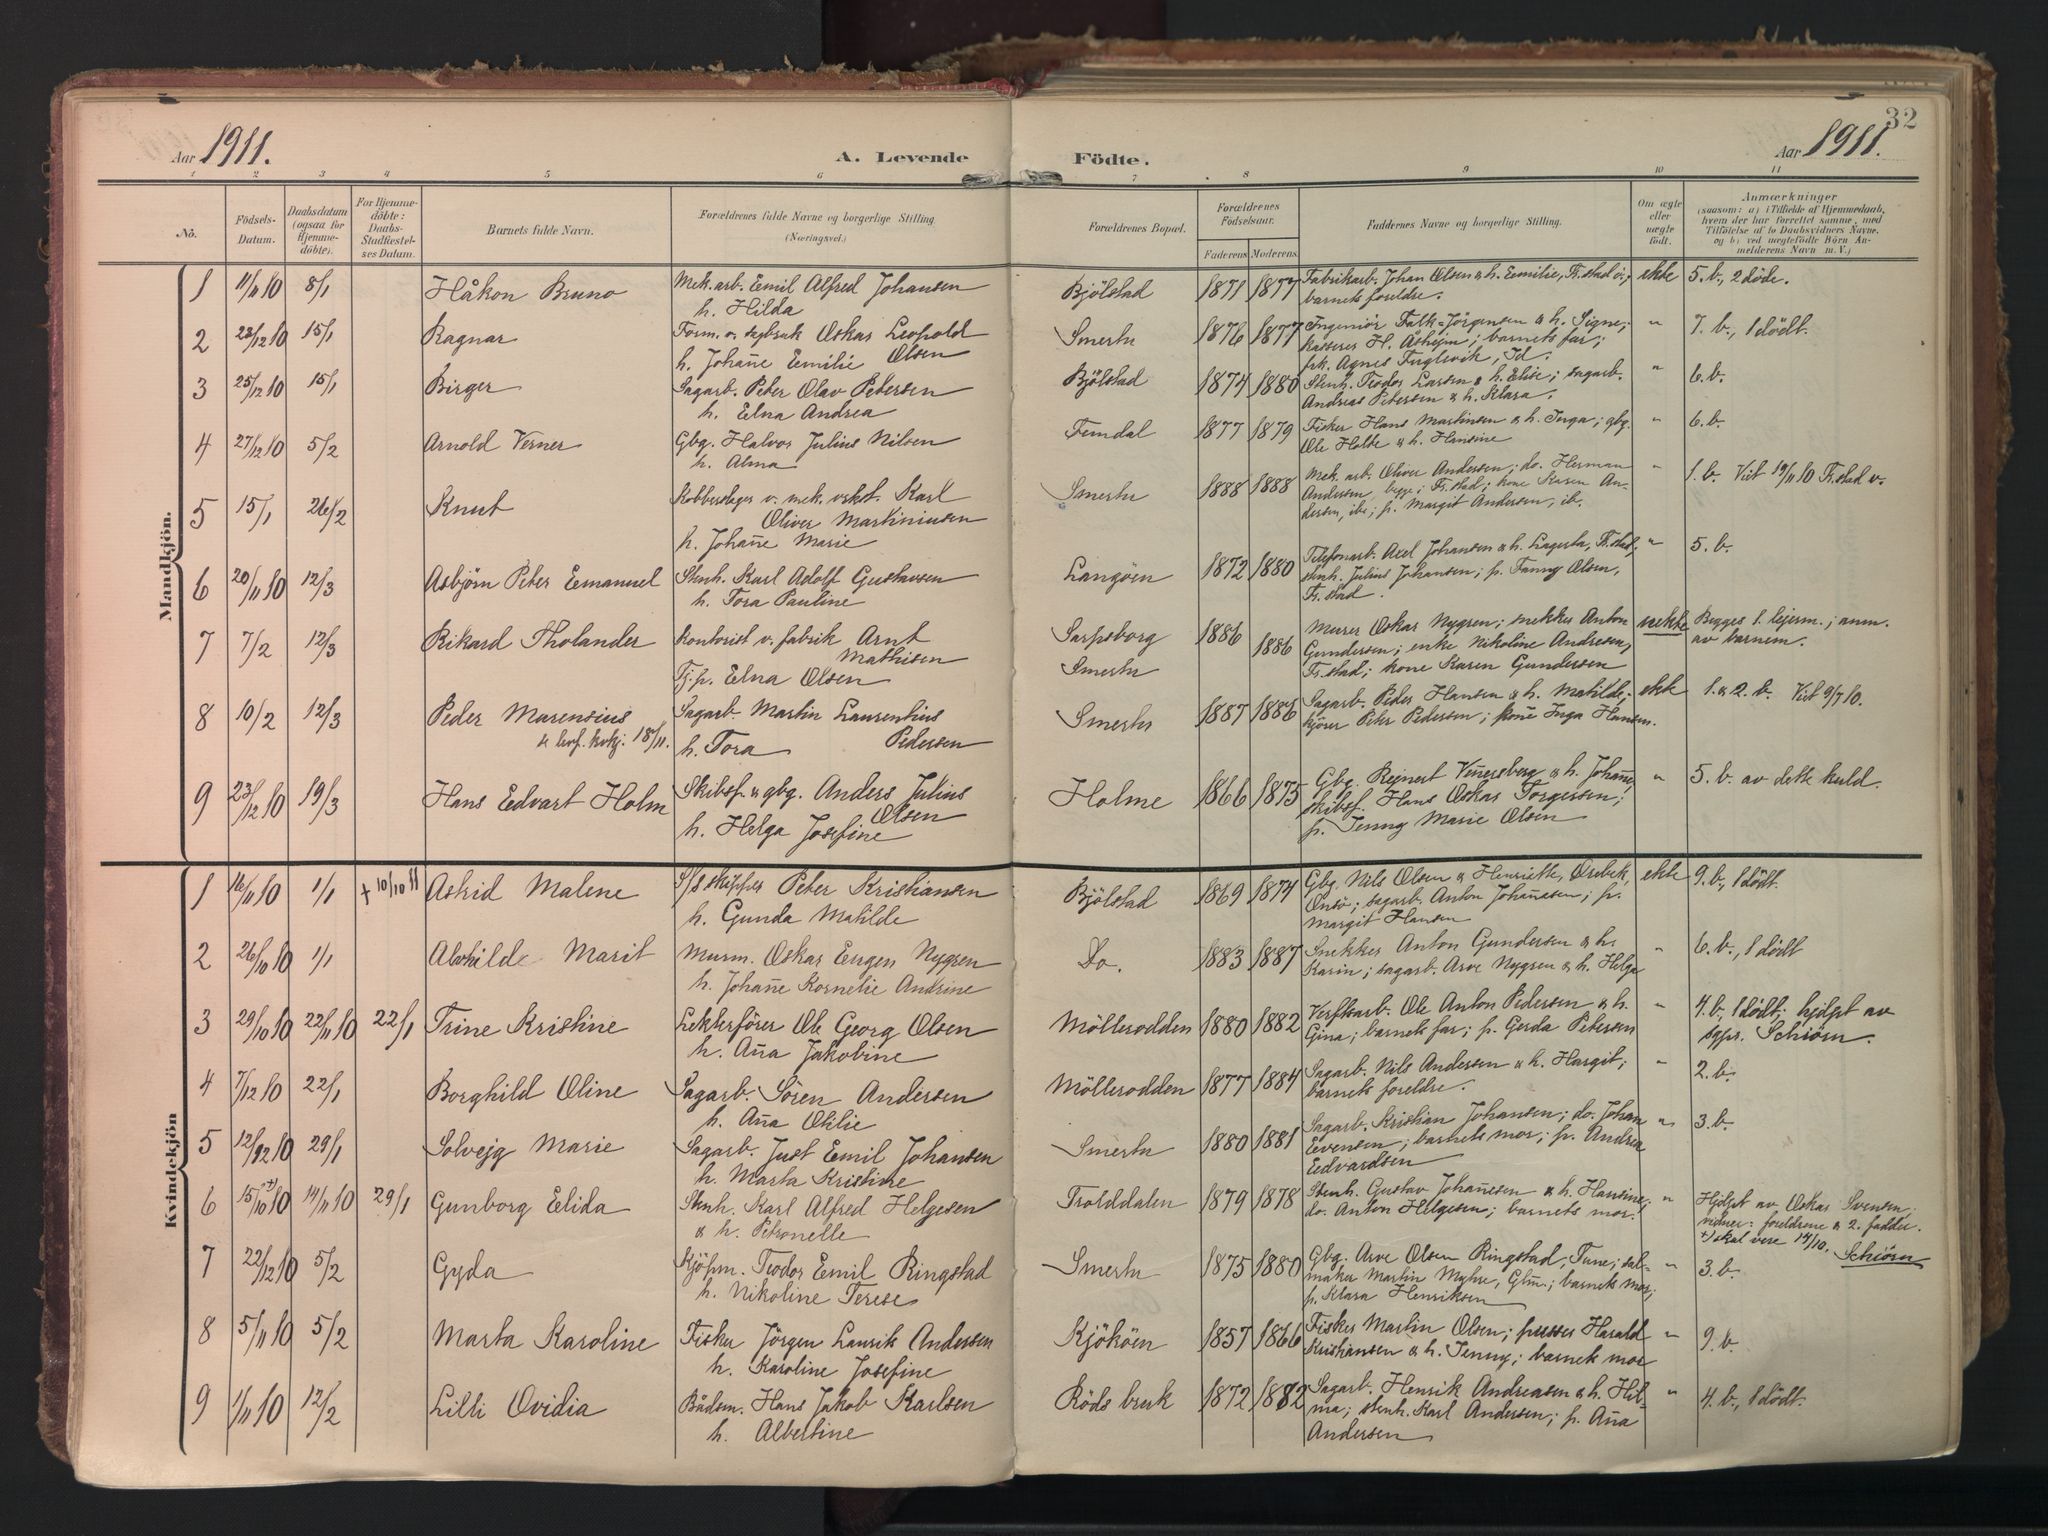 32
Aar 1911.
A. Levende Födte.
Aar 1911.
1 2 3 4 5 6 7 8 9 10 11
No.
Födsels-
Datum.
Daabsdatum
(ogsaa for
Hjemme-
döbte).
For Hjemme-
döbte:
Daabs-
Stadfæstel-
ses Datum.
Barnets fulde Navn.
Forældrenes fulde Navne og borgerlige Stilling
(Næringsvei.)
Forældrenes Bopæl.
Forældrenes
Födselsaar.
Faderens. Moderens.
Faddernes Navne og borgerlige Stilling.
Om ægte
eller
uægte
född.
Anmærkninger
(saasom: a) i Tilfælde af Hjemmedaab,
hvem der har forrettet samme, med
Tilföielse af to Daabsvidners Navne,
og b) ved uægtefödte Börn An-
melderens Navn m. V.)
Mandkjön.
1 11/11 10 8/1 Håkon Bruno
Mek. arb. Emil Alfred Johansen
h. Hilda
Bjölstad 1871 1877
Fabrikarb. Johan Olsen & h. Emilie, Fr.stad ö.;
barnets foreldre.
ekte 5. b., 2 döde.
2 23/12 10 15/1 Ragnar
Form. v. sagbruk Oskar Leopold
Olsen
h. Johan̄e Emilie
Smertu 1876 1877
Ingeniör Falk-Jörgensen & h. Signe;
kasserer H. Åsheim; barnets far;
frk. Agnes Fuglevik, Id.
" 7. b., 1 dödt.
3 25/12 10 15/1 Birger
Sagarb. Peter Olav Petersen
h. Elna Andrea
Bjölstad 1874 1880
Stenh. Teodor Larsen & h. Elise; sagarb.
Andreas Petersen & h. Klara.
" 6. b.
4 27/12 10 5/2 Arnold Verner
Gbg. Halvor Julius Nilsen
h. Alma
Femdal 1877 1879
Fisker Hans Martinsen & h. Inga; gbg.
Ole Holte & h. Hansine
" 6. b.
5 15/1 26/2 Knut
Kobberslager v. mek. verkst. Karl
Oliver Martiniusen
h. Johan̄e Marie
Smertu 1888 1888
Mek. arb. Oliver Andersen; do. Herman
Andersen, begge i Fr.stad; kone Karen An-
dersen, ibe; p. Margit Andersen, ib.
" 1. b. Viet 19/11 10 Fr.stad v.
6 20/11 10 12/3 Asbjörn Peter Emanuel
Stenh. Karl Adolf Gustavsen
h. Tora Pauline
Langöen 1872 1880
Telefonarb. Axel Johansen & h. Lagerta, Fr.stad;
stenh. Julius Johansen; p. Fanny Olsen,
Fr.stad.
" 5. b.
7 7/2 12/3 Rikard Tholander
Kontorist v. fabrik Arnt
Mathisen
Tj.p. Elna Olsen
Sarpsborg
Smertu
1886 1886
Murer Oskar Nygren; snekker Anton
Gundersen; enke Nikoline Andresen,
Fr.stad; kone Karen Gundersen
uekte Begges 1. lejerm.; anm.
av barnem.
8 10/2 12/3 Peder Marensius
Sagarb. Martin Laurentius
Pedersen
h. Tora
Smertu 1887 1886
Sagarb. Peder Hansen & h. Matilde;
kjörer Peter Pedersen; kon̄e Inga Hansen.
ekte 1. & 2. b. Viet 9/7 10.
9 23/12 10 19/3 Hans Edvart Holm
Skibsf. & gbg. Anders Julius
Olsen
h. Helga Josefine
Holme 1866 1875
Gbg. Rejnert Vin̄ersberg & h. Johan̄e;
skibsf. Hans Oskar Torgersen;
p. Jenny Marie Olsen
" 5. b. av dette kuld.
Kvindekjön
1 16/11 10 1/1 + 10/10 11 Astrid Malene
S/s skipper Peter Kristiansen
h. Gunda Matilde
Bjölstad 1869 1874
Gbg. Nils Olsen & Henriette, Örebek,
Onsö; sagarb. Anton Johan̄esen; p.
Margit Hansen
ekte 9. b., 1 dödt.
2 26/10 10 1/1 Alvhilde Marit
Murm. Oskar Eugen Nygren
h. Johan̄e Kornelie Andrine
Do. 1883 1887
Snekker Anton Gundersen & h.
Karin; sagarb. Arve Nygren & h. Helga
" 6. b., 1 dödt
3 29/10 10 22/11 10 22/1 Trine Kristine
Lekterförer Ole Georg Olsen
h. An̄a Jakobine
Möllerodden 1880 1882
Verftsarb. Ole Anton Pedersen & h.
Gina; barnets far; p. Gerda Petersen
" 4. b., 1 dödt; hjdpt av
sgpr. Schiörn.
4 7/12 10 22/1 Borghild Oline
Sagarb. Sören Andersen
h. An̄a Otilie
Möllerodden 1877 1884
Sagarb. Nils Andersen & h. Hargit;
barnets foreldre.
" 2. b.
5 12/12 10 29/1 Solvejg Marie
Sagarb. Just Emil Johansen
h. Marta Kristine
Smertu 1880 1881
Sagarb. Kristian Johansen; do. Johan
Evensen; barnets mor; p. Andrea
Edvardsen
" 3. b.
6 15/10 +) 10 14/11 10 29/1 Gunborg Elida
Stenh. Karl Alfred Helgesen
& h. Petronelle
Trolddalen 1879 1878
Stenh. Gustav Johan̄esen & h. Hansine;
do. Anton Helgesen; barnets mor.
" Hjdpt av Oskar Svensen;
vidner: foreldrene & 2. fadder.
+) skal vere 14/10. Schiörn
7 22/12 10 5/2 Gyda
Kjöpm. Teodor Emil Ringstad
h. Nikoline Terese
Smertu 1875 1880
Gbg. Arve Olsen Ringstad, Tune; sal-
maker Martin Myhre, Glm.; barnets mor;
p. Klara Henriksen
" 3. b.
8 5/11 10 5/2 Marta Karoline
Fisker Jörgen Laurits Andersen
h. Karoline Josefine
Kjököen 1857 1866
Fisker Martin Olsen; presser Harald
Kristiansen & h. Jenny; barnets mor
" 9. b.
9 1/11 10 12/2 Lilli Ovidia
Bådsm. Hans Jakob Karlsen
h. Albertine
Röds bruk 1872 1882
Sagarb. Henrik Andreasen & h. Hil-
ma; stenh. Karl Andersen; p. An̄a
Andersen
" 4. b., 1 dödt.